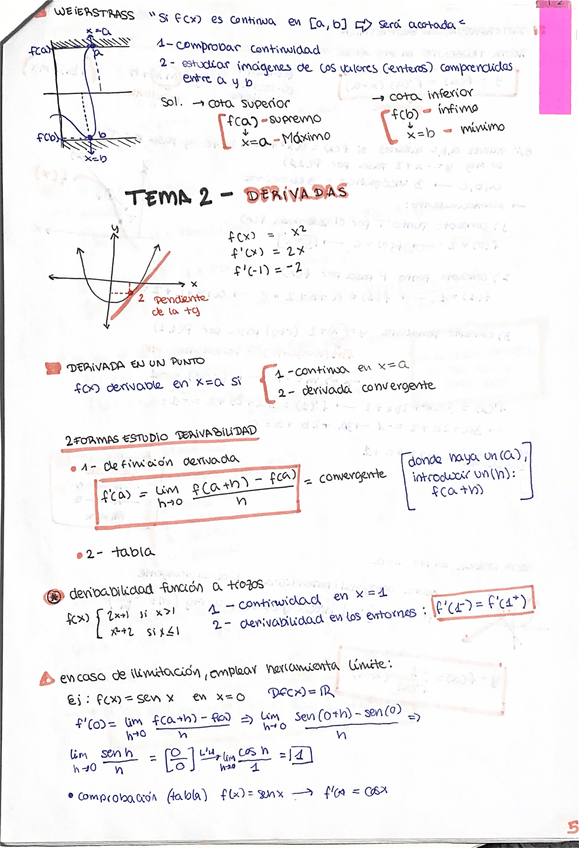 WEIERSTRASS "Si f(x) es continua en [a,b] ⇨ será acotada"
x=a
f(a)
a
1- comprobar continuidad
2- estudiar imágenes de los valores (enteros) comprendidos
entre a y b
Sol. → cota superior → cota inferior
f(a) - supremo f(b) - ínfimo
↓ ↓
x=a - Máximo x=b - mínimo
f(b)
b
x=b
TEMA 2 - DERIVADAS
y
x
2 Pendiente
de la tg
f(x) = x²
f'(x) = 2x
f'(-1) = -2
DERIVADA EN UN PUNTO
f(x) derivable en x=a si { 1 - continua en x=a
2- derivada convergente
2 FORMAS ESTUDIO DERIVABILIDAD
• 1- definición derivada
f'(a) = lim h→0 f(a+h) - f(a) / h = convergente
[donde haya un (a),
introducir un (h):
f(a+h)]
• 2- tabla
* deribabilidad función a trozos
f(x) { 2x+1 si x>1
x²+2 si x≤1
1 - continuidad en x=1
2- derivabilidad en los entornos: f'(1⁻) = f'(1⁺)
en caso de ilimitación, emplear herramienta límite:
Ej: f(x) = sen x en x=0 Df(x) = ℝ
f'(0) = lim h→0 f(a+h) - f(a) / h ⇒ lim h→0 sen(0+h) - sen(0) / h ⇒
lim h→0 sen h / h = [0/0] L'H → lim h→0 cos h / 1 = 1
• comprobación (tabla) f(x) = sen x → f'(x) = cos x
5